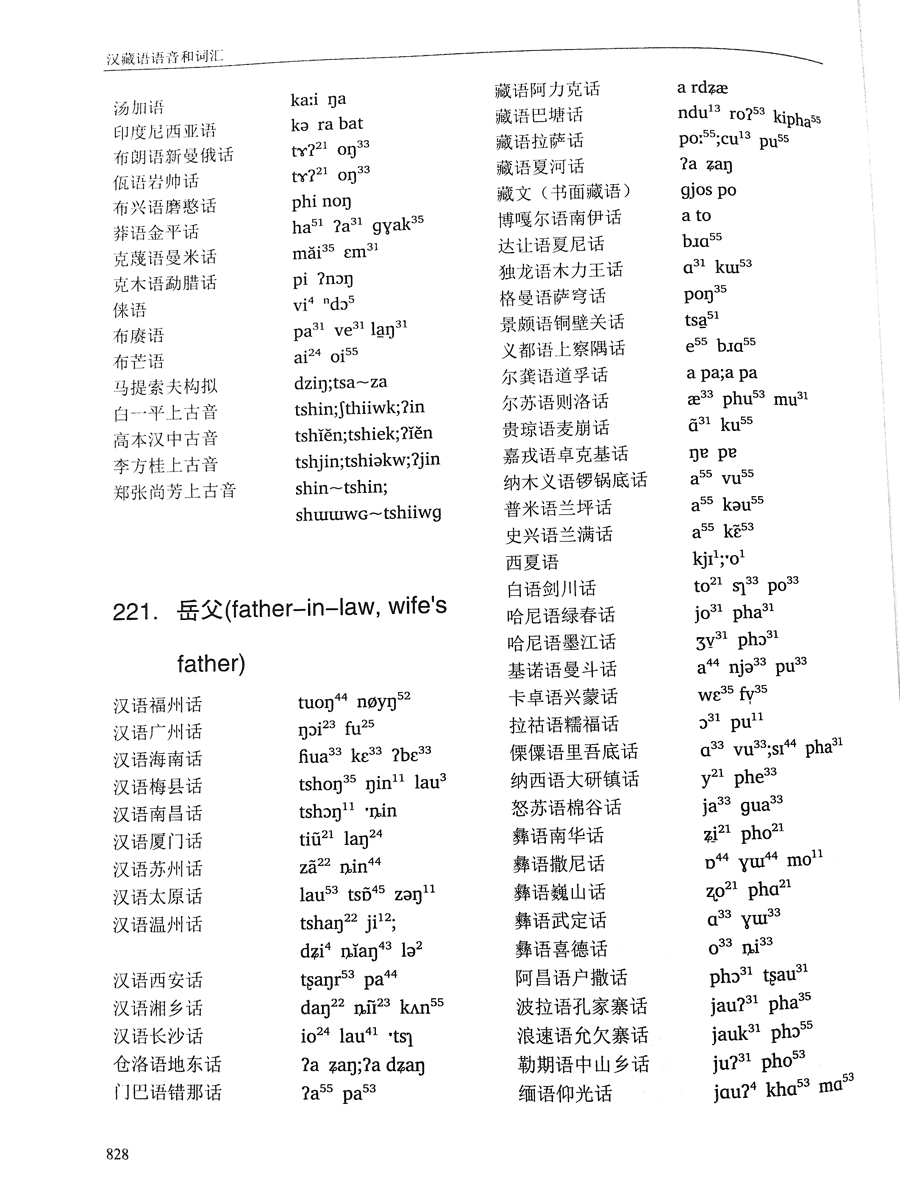 汉藏语语音和词汇
汤加语 kaːi ŋa
印度尼西亚语 kə ra bat
布朗语新曼俄话 tɤʔ²¹ oŋ³³
佤语岩帅话 tɤʔ²¹ oŋ³³
布兴语磨憨话 phi noŋ
莽语金平话 ha⁵¹ ʔa³¹ gɣak³⁵
克蔑语曼米话 măi³⁵ ɛm³¹
克木语勐腊话 pi ʔnɔŋ
俫语 vi⁴ ⁿdɔ⁵
布赓语 pa³¹ ve³¹ la̱ŋ³¹
布芒语 ai²⁴ oi⁵⁵
马提索夫构拟 dziŋ;tsa~za
白一平上古音 tshin;ʃthiiwk;ʔin
高本汉中古音 tshĭĕn;tshiek;ʔĭĕn
李方桂上古音 tshjin;tshiəkw;ʔjin
郑张尚芳上古音 shin~tshin;
shɯɯwɢ~tshiiwɡ
221. 岳父(father-in-law, wife's
father)
汉语福州话 tuoŋ⁴⁴ nøyŋ⁵²
汉语广州话 ŋɔi²³ fu²⁵
汉语海南话 ɦua³³ kɛ³³ ʔbɛ³³
汉语梅县话 tshoŋ³⁵ ŋin¹¹ lau³
汉语南昌话 tshɔŋ¹¹ ·ȵin
汉语厦门话 tiũ²¹ laŋ²⁴
汉语苏州话 zã²² ȵin⁴⁴
汉语太原话 lau⁵³ tsɒ̃⁴⁵ zəŋ¹¹
汉语温州话 tshaŋ²² ji¹²;
dʑi⁴ ȵĭaŋ⁴³ lə²
汉语西安话 tʂaŋr⁵³ pa⁴⁴
汉语湘乡话 daŋ²² ȵĩĩ²³ kʌn⁵⁵
汉语长沙话 io²⁴ lau⁴¹ ·tsʅ
仓洛语地东话 ʔa ʑaŋ;ʔa dʑaŋ
门巴语错那话 ʔa⁵⁵ pa⁵³
藏语阿力克话 a rdʑæ
藏语巴塘话 ndu¹³ roʔ⁵³ kipha⁵⁵
藏语拉萨话 poː⁵⁵;cu¹³ pu⁵⁵
藏语夏河话 ʔa ʑaŋ
藏文（书面藏语） gjos po
博嘎尔语南伊话 a to
达让语夏尼话 bɹɑ⁵⁵
独龙语木力王话 ɑ³¹ kɯ⁵³
格曼语萨穹话 poŋ³⁵
景颇语铜壁关话 tsa̱⁵¹
义都语上察隅话 e⁵⁵ bɹɑ⁵⁵
尔龚语道孚话 a pa;a pa
尔苏语则洛话 æ³³ phu⁵³ mu³¹
贵琼语麦崩话 ɑ̃³¹ ku⁵⁵
嘉戎语卓克基话 ŋɐ pɐ
纳木义语锣锅底话 a⁵⁵ vu⁵⁵
普米语兰坪话 a⁵⁵ kəu⁵⁵
史兴语兰满话 a⁵⁵ kɛ̃⁵³
西夏语 kjɪ¹;·o¹
白语剑川话 to²¹ sʅ³³ po³³
哈尼语绿春话 jo³¹ pha³¹
哈尼语墨江话 ʒv̩³¹ phɔ³¹
基诺语曼斗话 a⁴⁴ njə³³ pu³³
卡卓语兴蒙话 wɛ³⁵ fv̩³⁵
拉祜语糯福话 ɔ³¹ pu¹¹
傈僳语里吾底话 ɑ³³ vu³³;sɪ⁴⁴ pha³¹
纳西语大研镇话 y²¹ phe³³
怒苏语棉谷话 ja³³ gua³³
彝语南华话 ʑi̱²¹ pho²¹
彝语撒尼话 ɒ⁴⁴ ɣɯ⁴⁴ mo¹¹
彝语巍山话 ʐo²¹ phɑ²¹
彝语武定话 ɑ³³ ɣɯ³³
彝语喜德话 o³³ ȵi³³
阿昌语户撒话 phɔ³¹ tʂau³¹
波拉语孔家寨话 jauʔ³¹ pha³⁵
浪速语允欠寨话 jauk³¹ phɔ⁵⁵
勒期语中山乡话 juʔ³¹ pho⁵³
缅语仰光话 jɑuʔ⁴ khɑ⁵³ mɑ⁵³
828